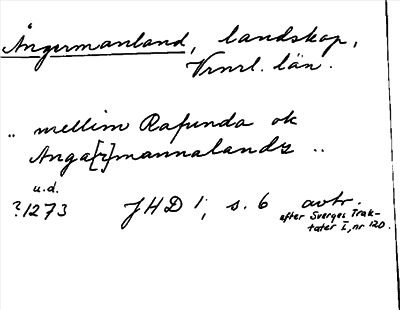 Ångermanland, landskap,
Vrnrl. län.
.. mellim Rafunda ok
Anga[r]mannalandz ..
u.d.
?1273 JHD 1, s. 6 avtr.
efter Sverges Trak-
tater I, nr 120.